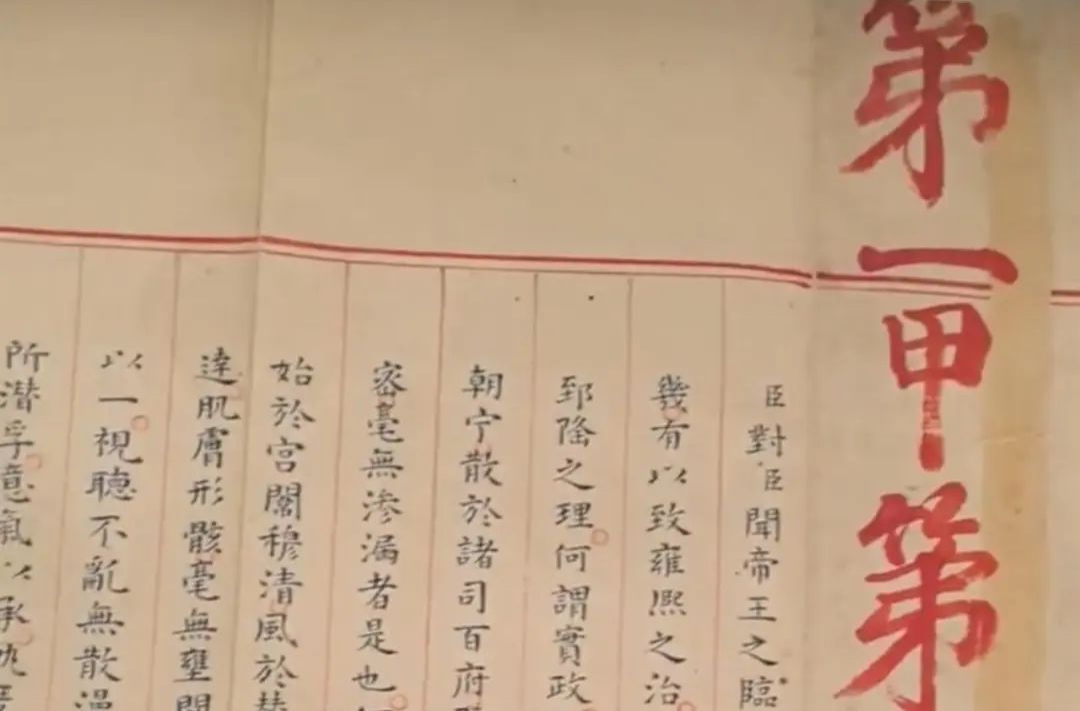 第一甲第
臣對臣聞帝王之臨
幾有以致雍熙之治
郅隆之理何謂實政
朝宁散於諸司百府
密毫無滲漏者是也
始於宮闈穆清風於
達肌膚形骸毫無壅
以一視聽不亂無散漫
所潜孚意氣以承